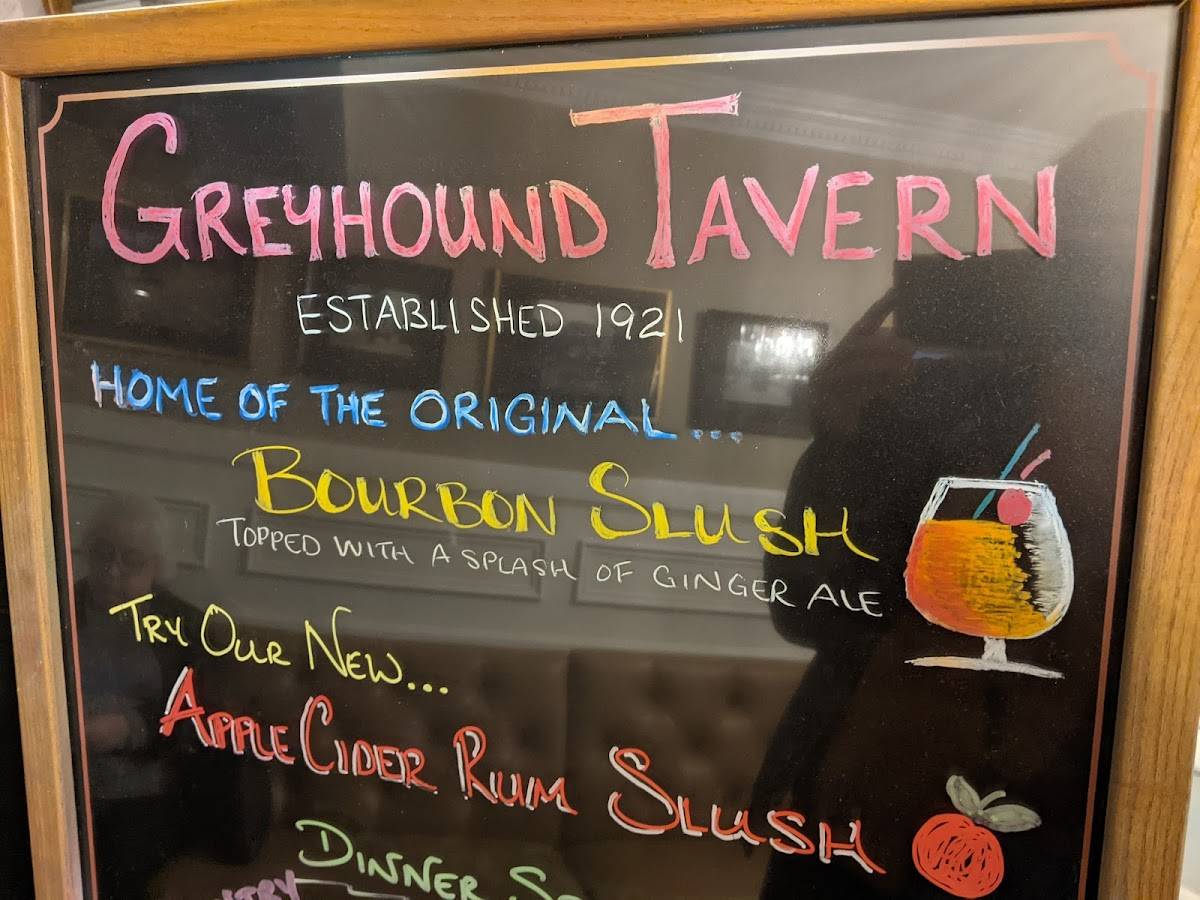 GREYHOUND TAVERN
ESTABLISHED 1921
HOME OF THE ORIGINAL...
BOURBON SLUSH
TOPPED WITH A SPLASH OF GINGER ALE
TRY OUR NEW...
APPLE CIDER RUM SLUSH
DINNER